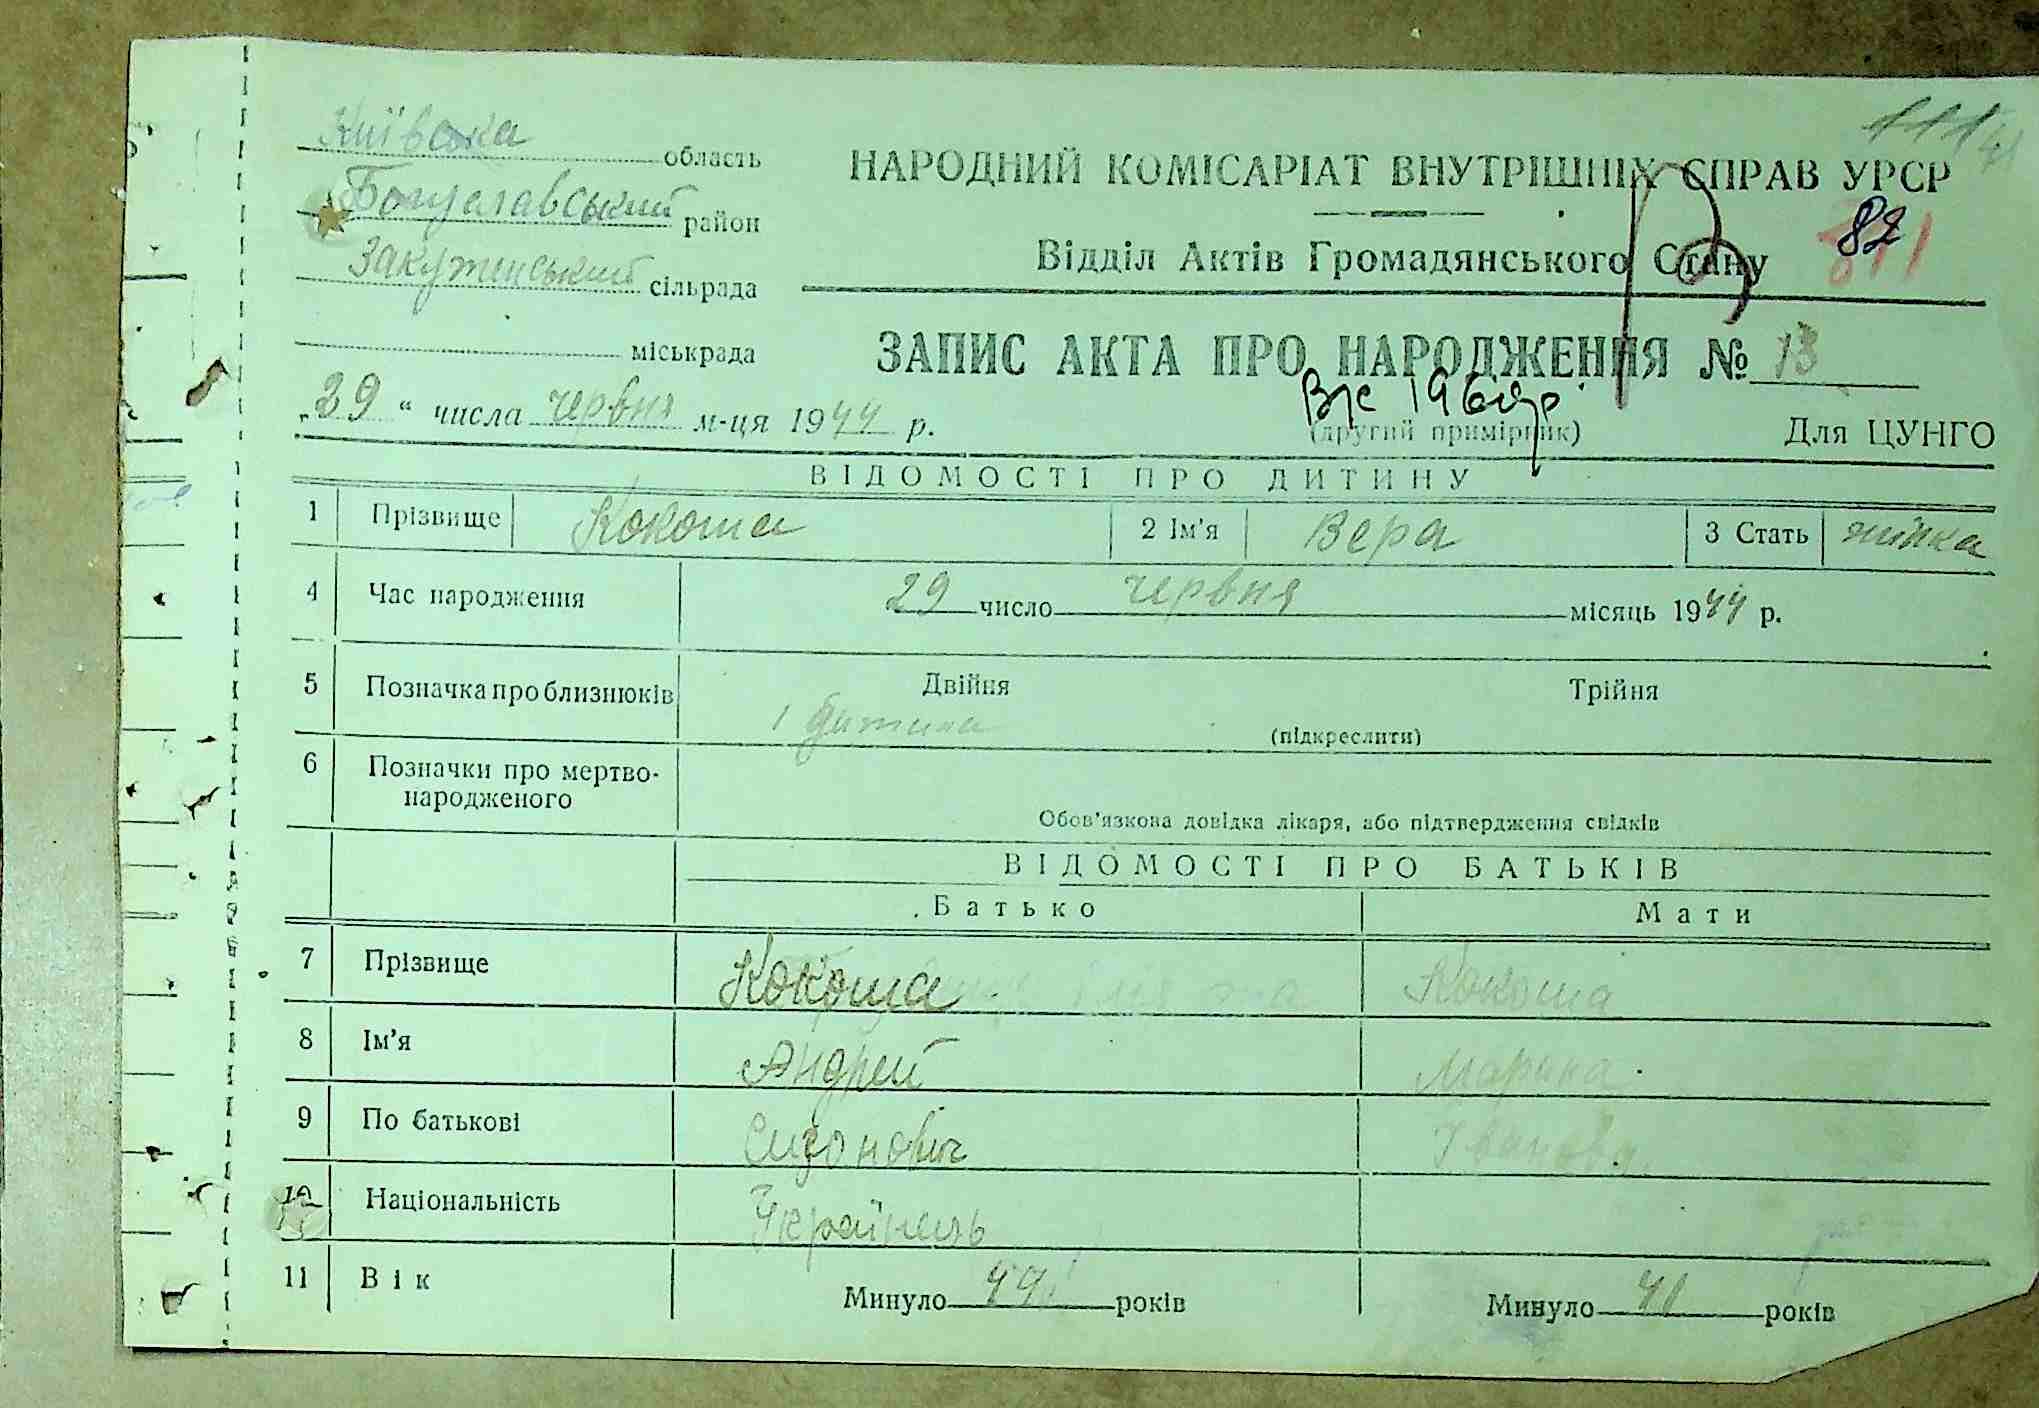 Київська область
Богуславський район
Закутинський сільрада
міськрада
НАРОДНИЙ КОМІСАРІАТ ВНУТРІШНІХ СПРАВ УРСР
82
Відділ Актів Громадянського Стану
ЗАПИС АКТА ПРО НАРОДЖЕННЯ № 13
„29“ числа червня м-ця 1944 р.
(другий примірник) Для ЦУНГО
ВІДОМОСТІ ПРО ДИТИНУ
1 Прізвище Кокоша 2 Ім'я Вера 3 Стать жінка
4 Час народження 29 число червня місяць 1944 р.
5 Позначка про близнюків Двійня Трійня
1 дитина (підкреслити)
6 Позначки про мертво-
народженого
Обов'язкова довідка лікаря, або підтвердження свідків
ВІДОМОСТІ ПРО БАТЬКІВ
Батько Мати
7 Прізвище Кокоша Кокоша
8 Ім'я Андрей
9 По батькові Сизонович
10 Національність Українець
11 Вік Минуло 49 років Минуло 41 років